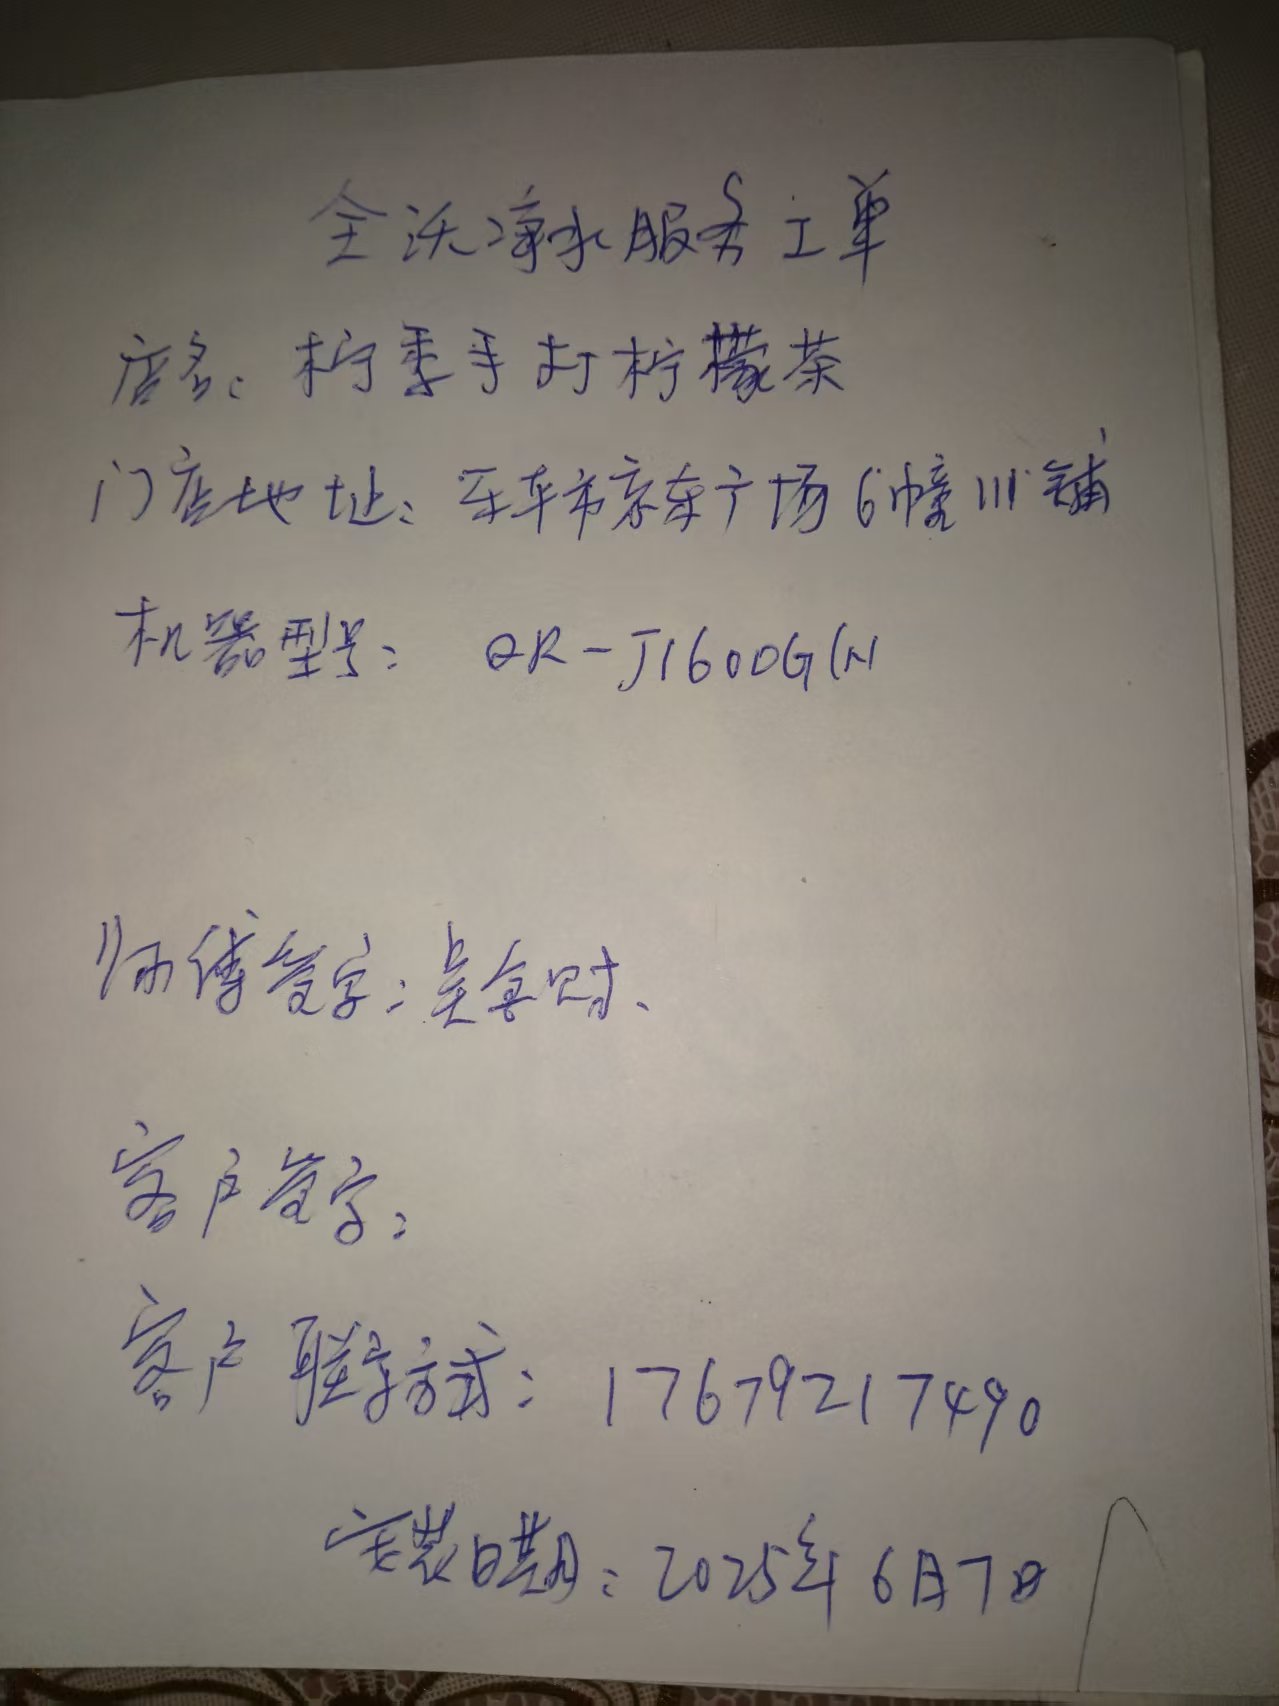 全沃净水服务工单
店名：柠季手打柠檬茶
门店地址：乐平市京东广场6幢111铺
机器型号：QR-J1600G(N
师傅签字：吴金财、
客户签字：
客户联系方式：17679217490
安装日期：2025年6月7日